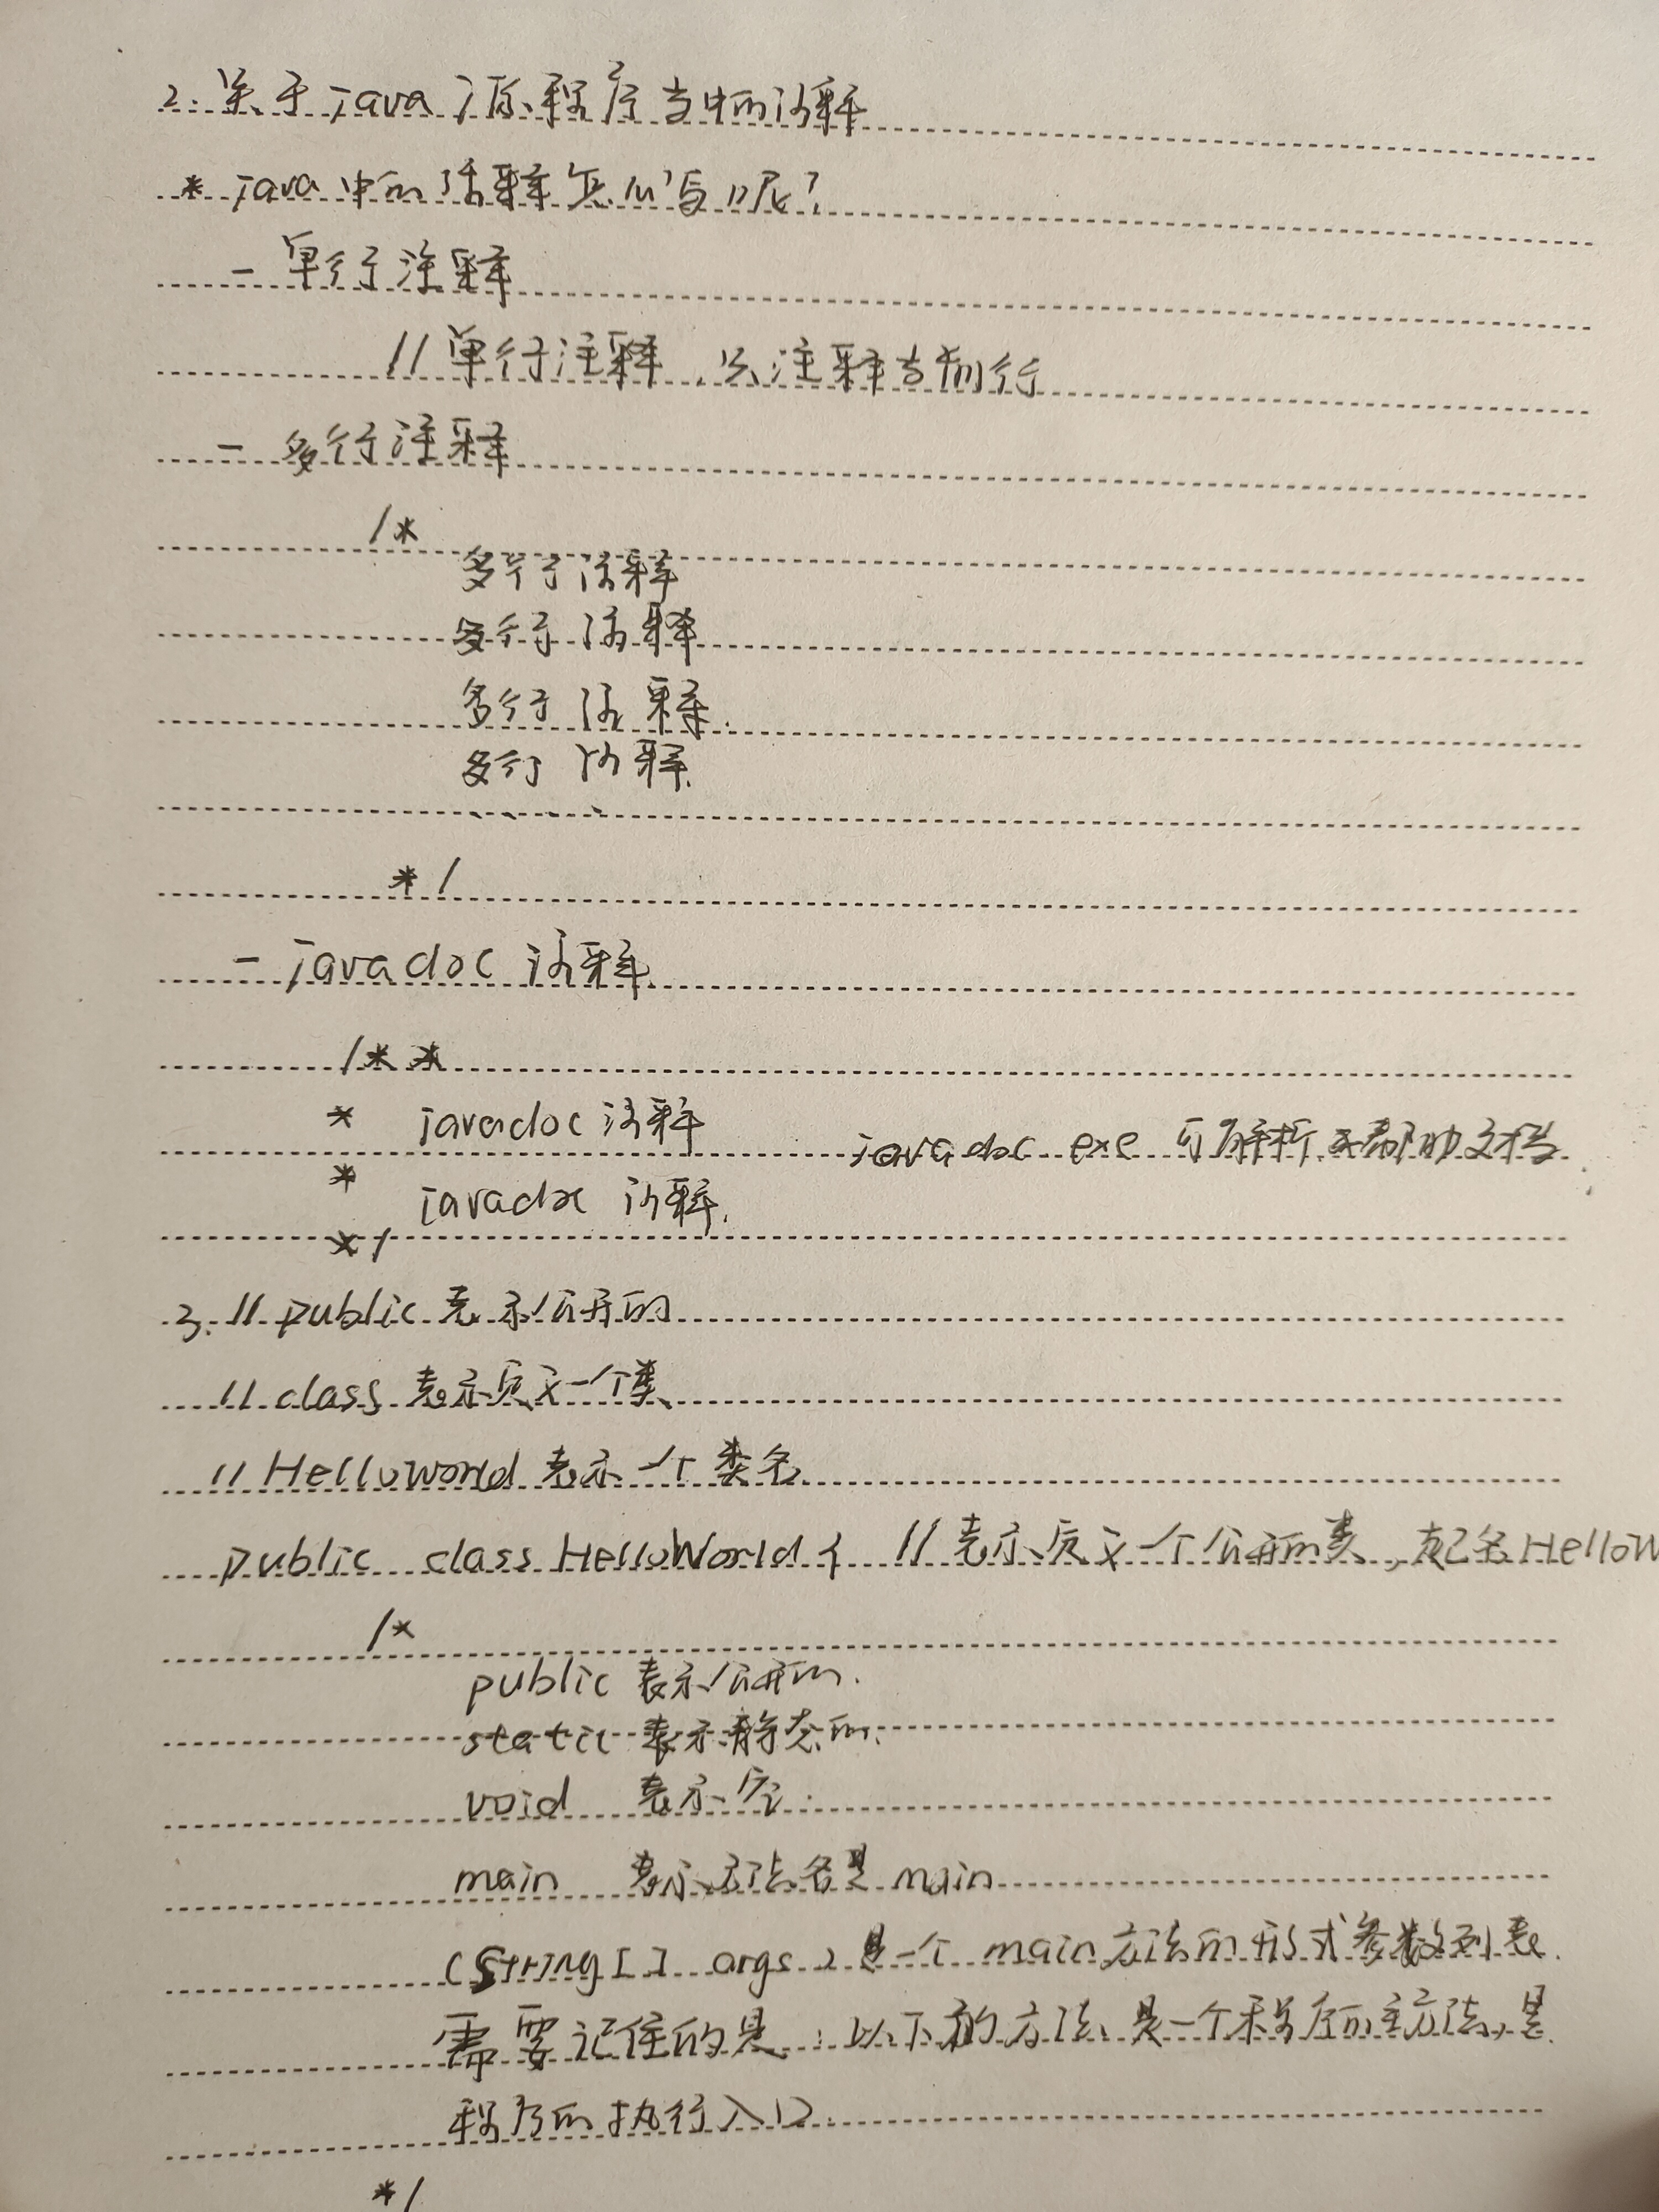 2. 关于java源程序当中的注释
* java中的注释怎么写呢?
- 单行注释
// 单行注释,只注释当前行
- 多行注释
/*
多行注释
多行注释
多行注释.
多行注释.
.....
*/
- javadoc 注释.
/**
* javadoc 注释
javadoc.exe 可解析 帮助文档.
* javadoc 注释.
*/
3. // public 表示公开的
// class 表示定义一个类
// HelloWorld 表示一个类名
public class HelloWorld { // 表示定义一个公开的类,起名HelloW
/*
public 表示公开的.
static 表示静态的.
void 表示空.
main 表示方法名是 main
(String[] args) 是一个 main方法的形式参数列表.
需要记住的是:以下的方法是一个程序的主方法,是
程序的执行入口.
*/